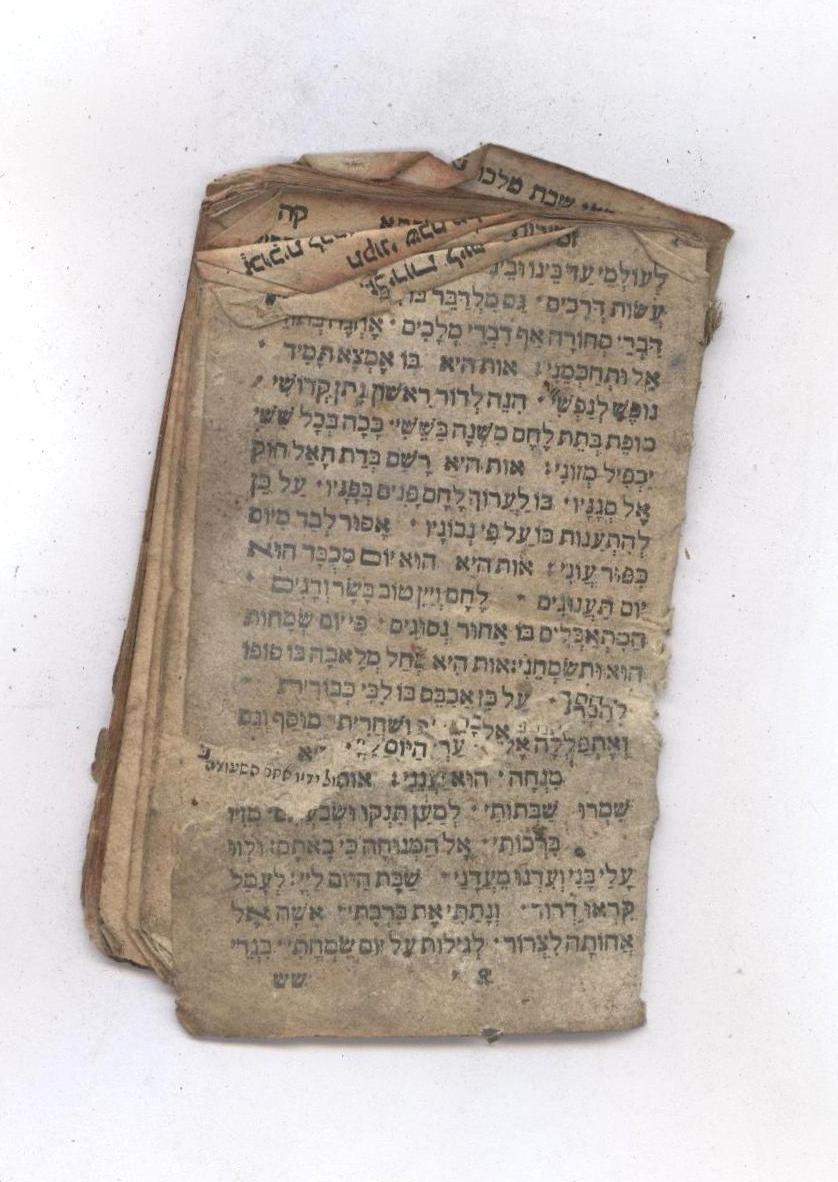 שבת מלכו
קה
תקוני שבת
זמירות ליום
לעוֹלְמֵי עַד בֵּינוֹ וּבֵינִי
עֲשׂוֹת דְּרָכִים · גַּם מִלְּדַבֵּר בּוֹ
דִּבְרֵי סְחוֹרָה אַף דִּבְרֵי מְלָכִים ·
אֵל וּתְחַכְּמֵנִי : אות היא בּוֹ אֶמְצָא תָמִיד
נוֹפֶשׁ לְנַפְשִׁי · הִנֵּה לְדוֹר רִאשׁוֹן נָתַן קְדוֹשִׁי
מוֹפֵת בְּתֵת לֶחֶם מִשְׁנֶה בַּשִּׁשִּׁי · כָּכָה בְּכָל שִׁשִּׁי
יַכְפִּיל מְזוֹנִי : אות היא רָשַׁם בְּדַת הָאֵל חוֹק
אֶל סְגָנָיו · בּוֹ לַעֲרוֹךְ לֶחֶם פָּנִים בְּפָנָיו · עַל כֵּן
לְהִתְעַנּוֹת בּוֹ עַל פִּי נְבוֹנָיו · אָסוּר לְבַד מִיּוֹם
כִּפּוּר עֲוֹנִי : אות היא הוּא יוֹם מְכֻבָּד הוּא
יוֹם תַּעֲנוּגִים · לֶחֶם וְיַיִן טוֹב בָּשָׂר וְדָגִים
הַמִּתְאַבְּלִים בּוֹ אָחוֹר נְסוֹגִים · כִּי יוֹם שְׂמָחוֹת
הוּא וּתְשַׂמְּחֵנִי : אות היא מֵחֵל מְלָאכָה בּוֹ סוֹפוֹ
לְהַכְרִית · עַל כֵּן אֲכַבֵּס בּוֹ לִבִּי כְּבוֹרִית
וְאֶתְפַּלְלָה אֶל אֵל וְשַׁחֲרִית · מוּסָף וְגַם
מִנְחָה · הוּא יַעֲנֵנִי : אות
שִׁמְרוּ שַׁבְּתוֹתַי · לְמַעַן תִּינְקוּ וּשְׂבַעְתֶּם · מִזִּיו
בִּרְכוֹתַי · אֶל הַמְּנוּחָה כִּי בָאתֶם : וּלְווּ
עָלַי בָּנַי וְעִדְנוּ מַעֲדָנַי · שַׁבָּת הַיּוֹם לַיְיָ : לְעָמֵל
קִרְאוּ דְרוֹר · וְנָתַתִּי אֶת בִּרְכָתִי · אִשָּׁה אֶל
אֲחוֹתָהּ לִצְרוֹר · לְגַלּוֹת עַל יוֹם שִׂמְחָתִי · בִּגְדֵי
שש